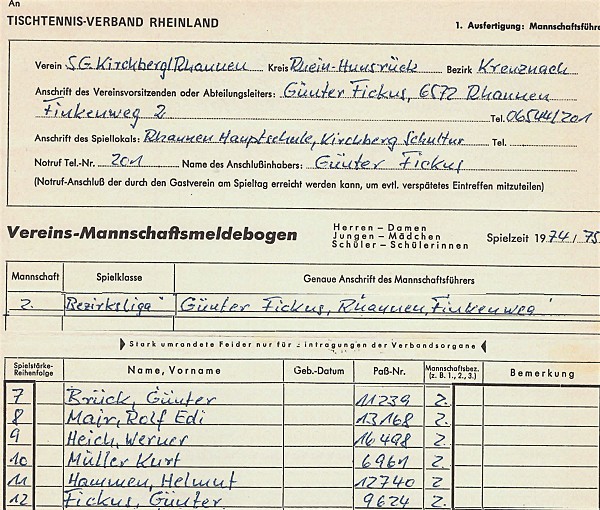 An
TISCHTENNIS-VERBAND RHEINLAND
1. Ausfertigung: Mannschaftsführe
Verein S.G. Kirchberg/Rhaunen Kreis Rhein-Hunsrück Bezirk Kreuznach
Anschrift des Vereinsvorsitzenden oder Abteilungsleiters: Günter Fickus, 6572 Rhaunen
Finkenweg 2 Tel. 06544/201
Anschrift des Spiellokals: Rhaunen Hauptschule, Kirchberg Schultur Tel.
Notruf Tel.-Nr. 201 Name des Anschlußinhabers: Günter Fickus
(Notruf-Anschluß der durch den Gastverein am Spieltag erreicht werden kann, um evtl. verspätetes Eintreffen mitzuteilen)
Vereins-Mannschaftsmeldebogen
Herren – Damen
Jungen – Mädchen
Schüler – Schülerinnen
Spielzeit 1974 / 75
Mannschaft Spielklasse Genaue Anschrift des Mannschaftsführers
2. Bezirksliga Günter Fickus, Rhaunen, Finkenweg
Stark umrandete Felder nur für Eintragungen der Verbandsorgane
Spielstärke-Reihenfolge Name, Vorname Geb.-Datum Paß-Nr. Mannschaftsbez. (z. B. 1., 2., 3.) Bemerkung
7 Brück, Günter 11239 2.
8 Mair, Rolf Edi 13168 2.
9 Heich, Werner 16498 2.
10 Müller Kurt 6961 2
11 Hammen, Helmut 12740 2
12 Fickus, Günter 9624 2.